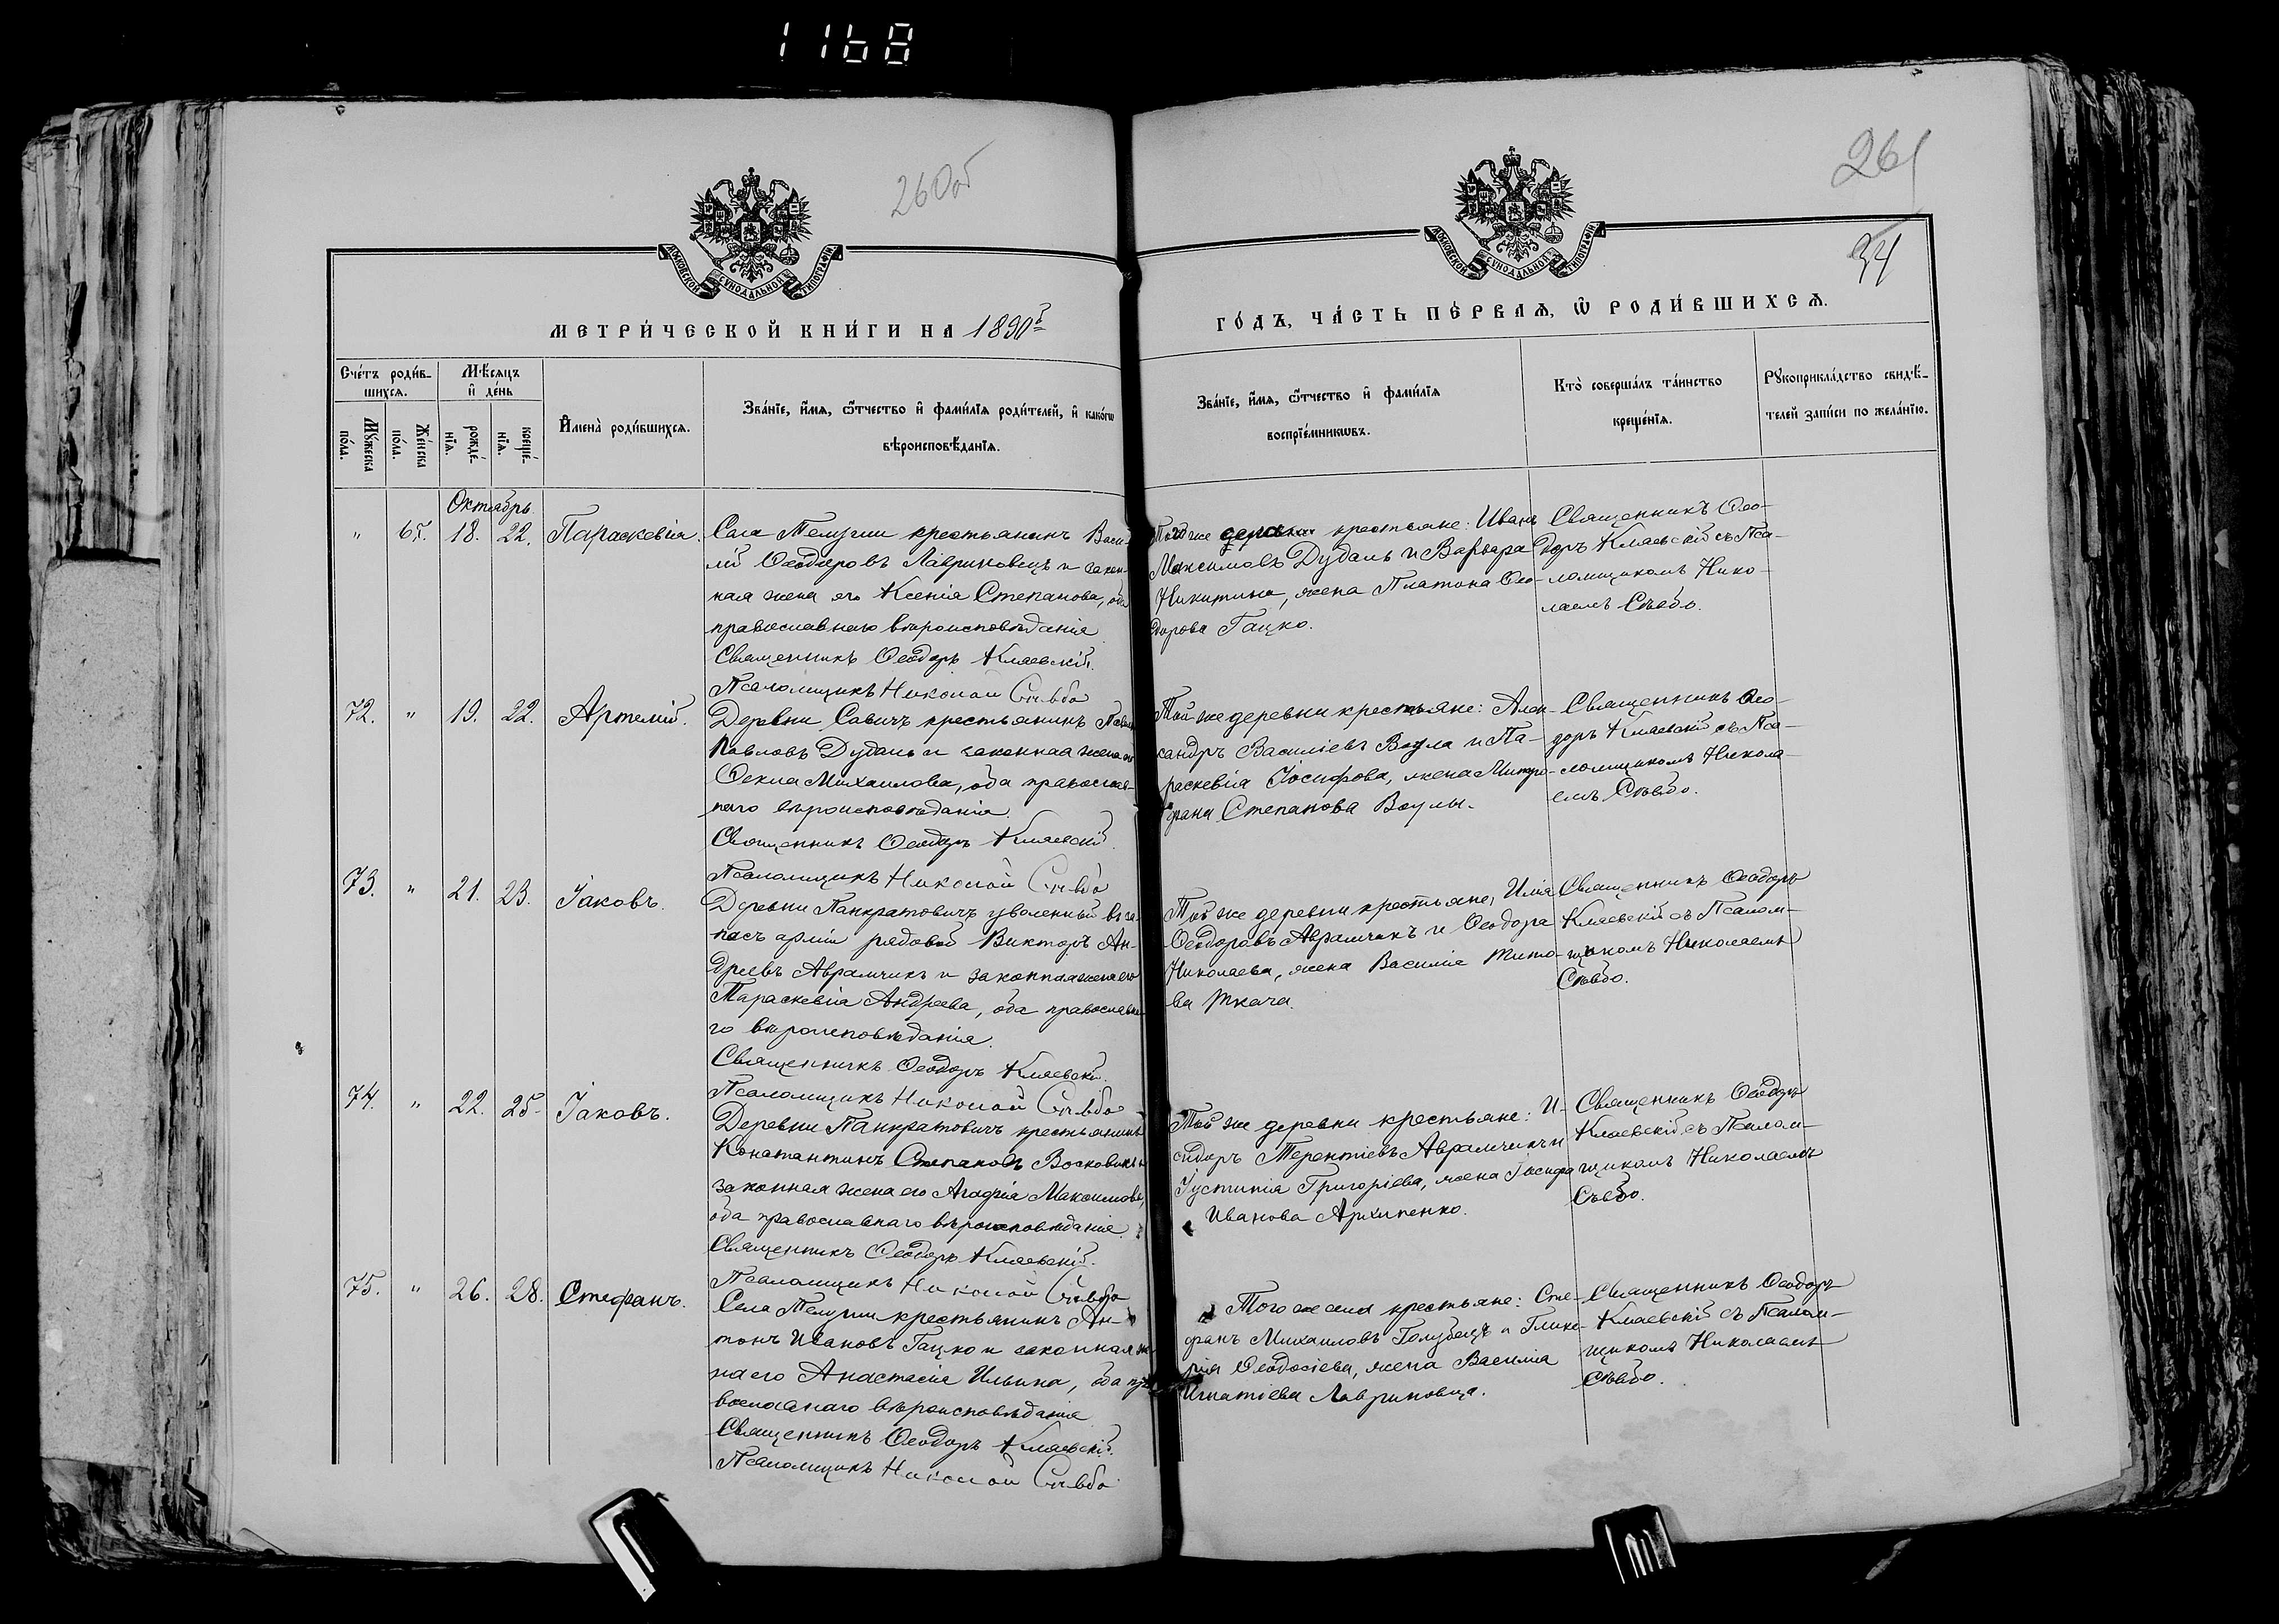 1168
260об
261
34
МОСКОВСКОЙ СѴНОДАЛЬНОЙ ТИПОГРАФІИ
МОСКОВСКОЙ СѴНОДАЛЬНОЙ ТИПОГРАФІИ
МЕТРИ́ЧЕСКОЙ КНИ́ГИ НА 1890й
ГО́ДЪ, ЧА́СТЬ ПЕ́РВАѦ, Ѡ҆ РОДИ́ВШИХСѦ.
Сче́тъ роди́в-
шихсѧ.
Мѣ́сѧцъ
и҆ де́нь
Мꙋ́жеска
по́ла.
Же́нска
по́ла.
рожде́-
нїѧ.
креще́-
нїѧ.
И҆мена̀ роди́вшихсѧ.
Зва́нїе, и҆́мѧ, ѻ҆́тчество и҆ фами́лїѧ роди́телей, и҆ какѡ́гѡ
вѣроисповѣ́данїѧ.
Зва́нїе, и҆́мѧ, ѻ҆́тчество и҆ фами́лїѧ
воспрїе́мникѡвъ.
Кто̀ соверша́лъ та́инство
креще́нїѧ.
Рꙋкоприкла́дство свидѣ́-
телей за́писи по жела́нїю.
Октябрь.
" 65. 18. 22. Параскевіа.
Села Телуши крестьянинъ Васи-
лій Ѳеодоровъ Лавриновецъ и закон-
ная жена его Ксенія Степанова, оба
православнаго вѣроисповѣданія
Священникъ Ѳеодоръ Кляевскій.
Псаломщикъ Николай Съвбо
же деревни крестьяне: Иванъ
Максимовъ Дудаль и Варвара
Никитина, жена Платона Ѳео-
дорова Гацко.
Священникъ Ѳео-
доръ Кляевскій съ Пса-
ломщикомъ Нико-
лаемъ Съвбо.
72. " 19. 22. Артемій.
Деревни Савичъ крестьянинъ Павелъ
Павловъ Дудаль и законная жена его
Ѳекла Михаилова, оба православ-
наго вѣроисповѣданія.
Священникъ Ѳеодоръ Кляевскій
Псаломщикъ Николай Съвбо
Той же деревни крестьяне: Алек-
сандръ Василіевъ Ваула и Па-
раскевіа Іосифова, жена Митро-
фана Степанова Ваулы.
Священникъ Ѳео-
доръ Кляевскій съ Пса-
ломщикомъ Никола-
емъ Съвбо.
73. " 21. 23. Іаковъ.
Деревни Панкратовичъ уволенный въ за-
пасъ арміи рядовой Викторъ Ан-
дреевъ Аврамчикъ и законная жена его
Параскевіа Андреева, оба православна-
го вѣроисповѣданія.
Священникъ Ѳеодоръ Кляевскій.
Псаломщикъ Николай Съвбо
Той же деревни крестьяне, Илія
Ѳеодоровъ Аврамчикъ и Ѳеодора
Николаева, жена Василія Тито-
ва Ткача.
Священникъ Ѳеодоръ
Кляевскій съ Псалом-
щикомъ Николаемъ
Съвбо.
74. " 22. 25. Іаковъ.
Деревни Панкратовичъ крестьянинъ
Константинъ Степановъ Восковикъ и
законная жена его Агафіа Максимова,
оба православнаго вѣроисповѣданія.
Священникъ Ѳеодоръ Кляевскій.
Псаломщикъ Николай Съвбо
Той же деревни крестьяне: И-
сидоръ Терентіевъ Аврамчикъ и
Іустинія Григоріева, жена Іосифа
Иванова Архипенко.
Священникъ Ѳеодоръ
Кляевскій съ Псалом-
щикомъ Николаемъ
Съвбо.
75. " 26. 28. Стефанъ.
Села Телуши крестьянинъ Ан-
тонъ Ивановъ Гацко и законная же-
на его Анастасія Ильина, оба пра-
вославнаго вѣроисповѣданія
Священникъ Ѳеодоръ Кляевскій.
Псаломщикъ Николай Съвбо
Того же села крестьяне: Сте-
фанъ Михаиловъ Голубецъ и Глике-
рія Ѳеодосіева, жена Василія
Игнатіева Лавриновца.
Священникъ Ѳеодоръ
Кляевскій съ Псалом-
щикомъ Николаемъ
Съвбо.